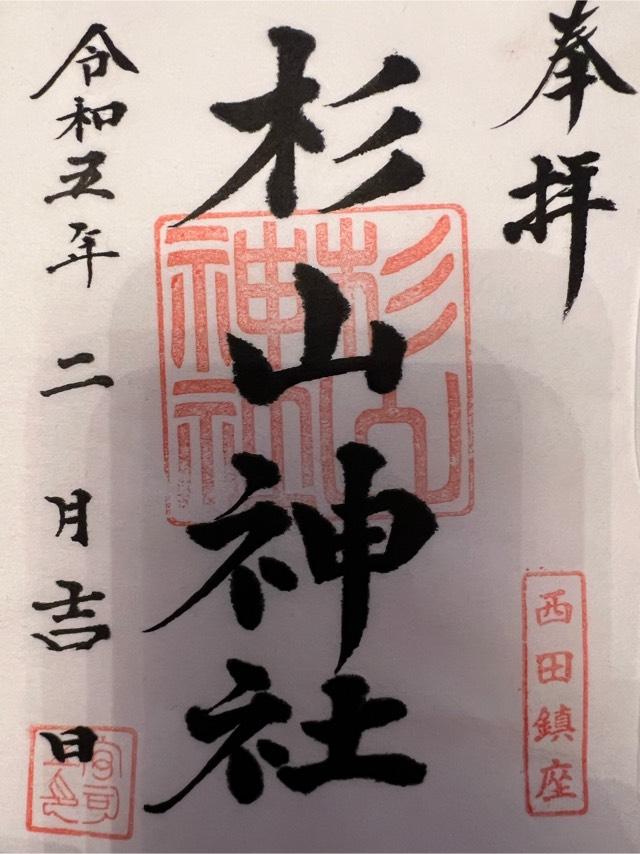 奉拝
西田鎮座
杉山神社
杉山神社
令和五年二月吉日
宮司之印